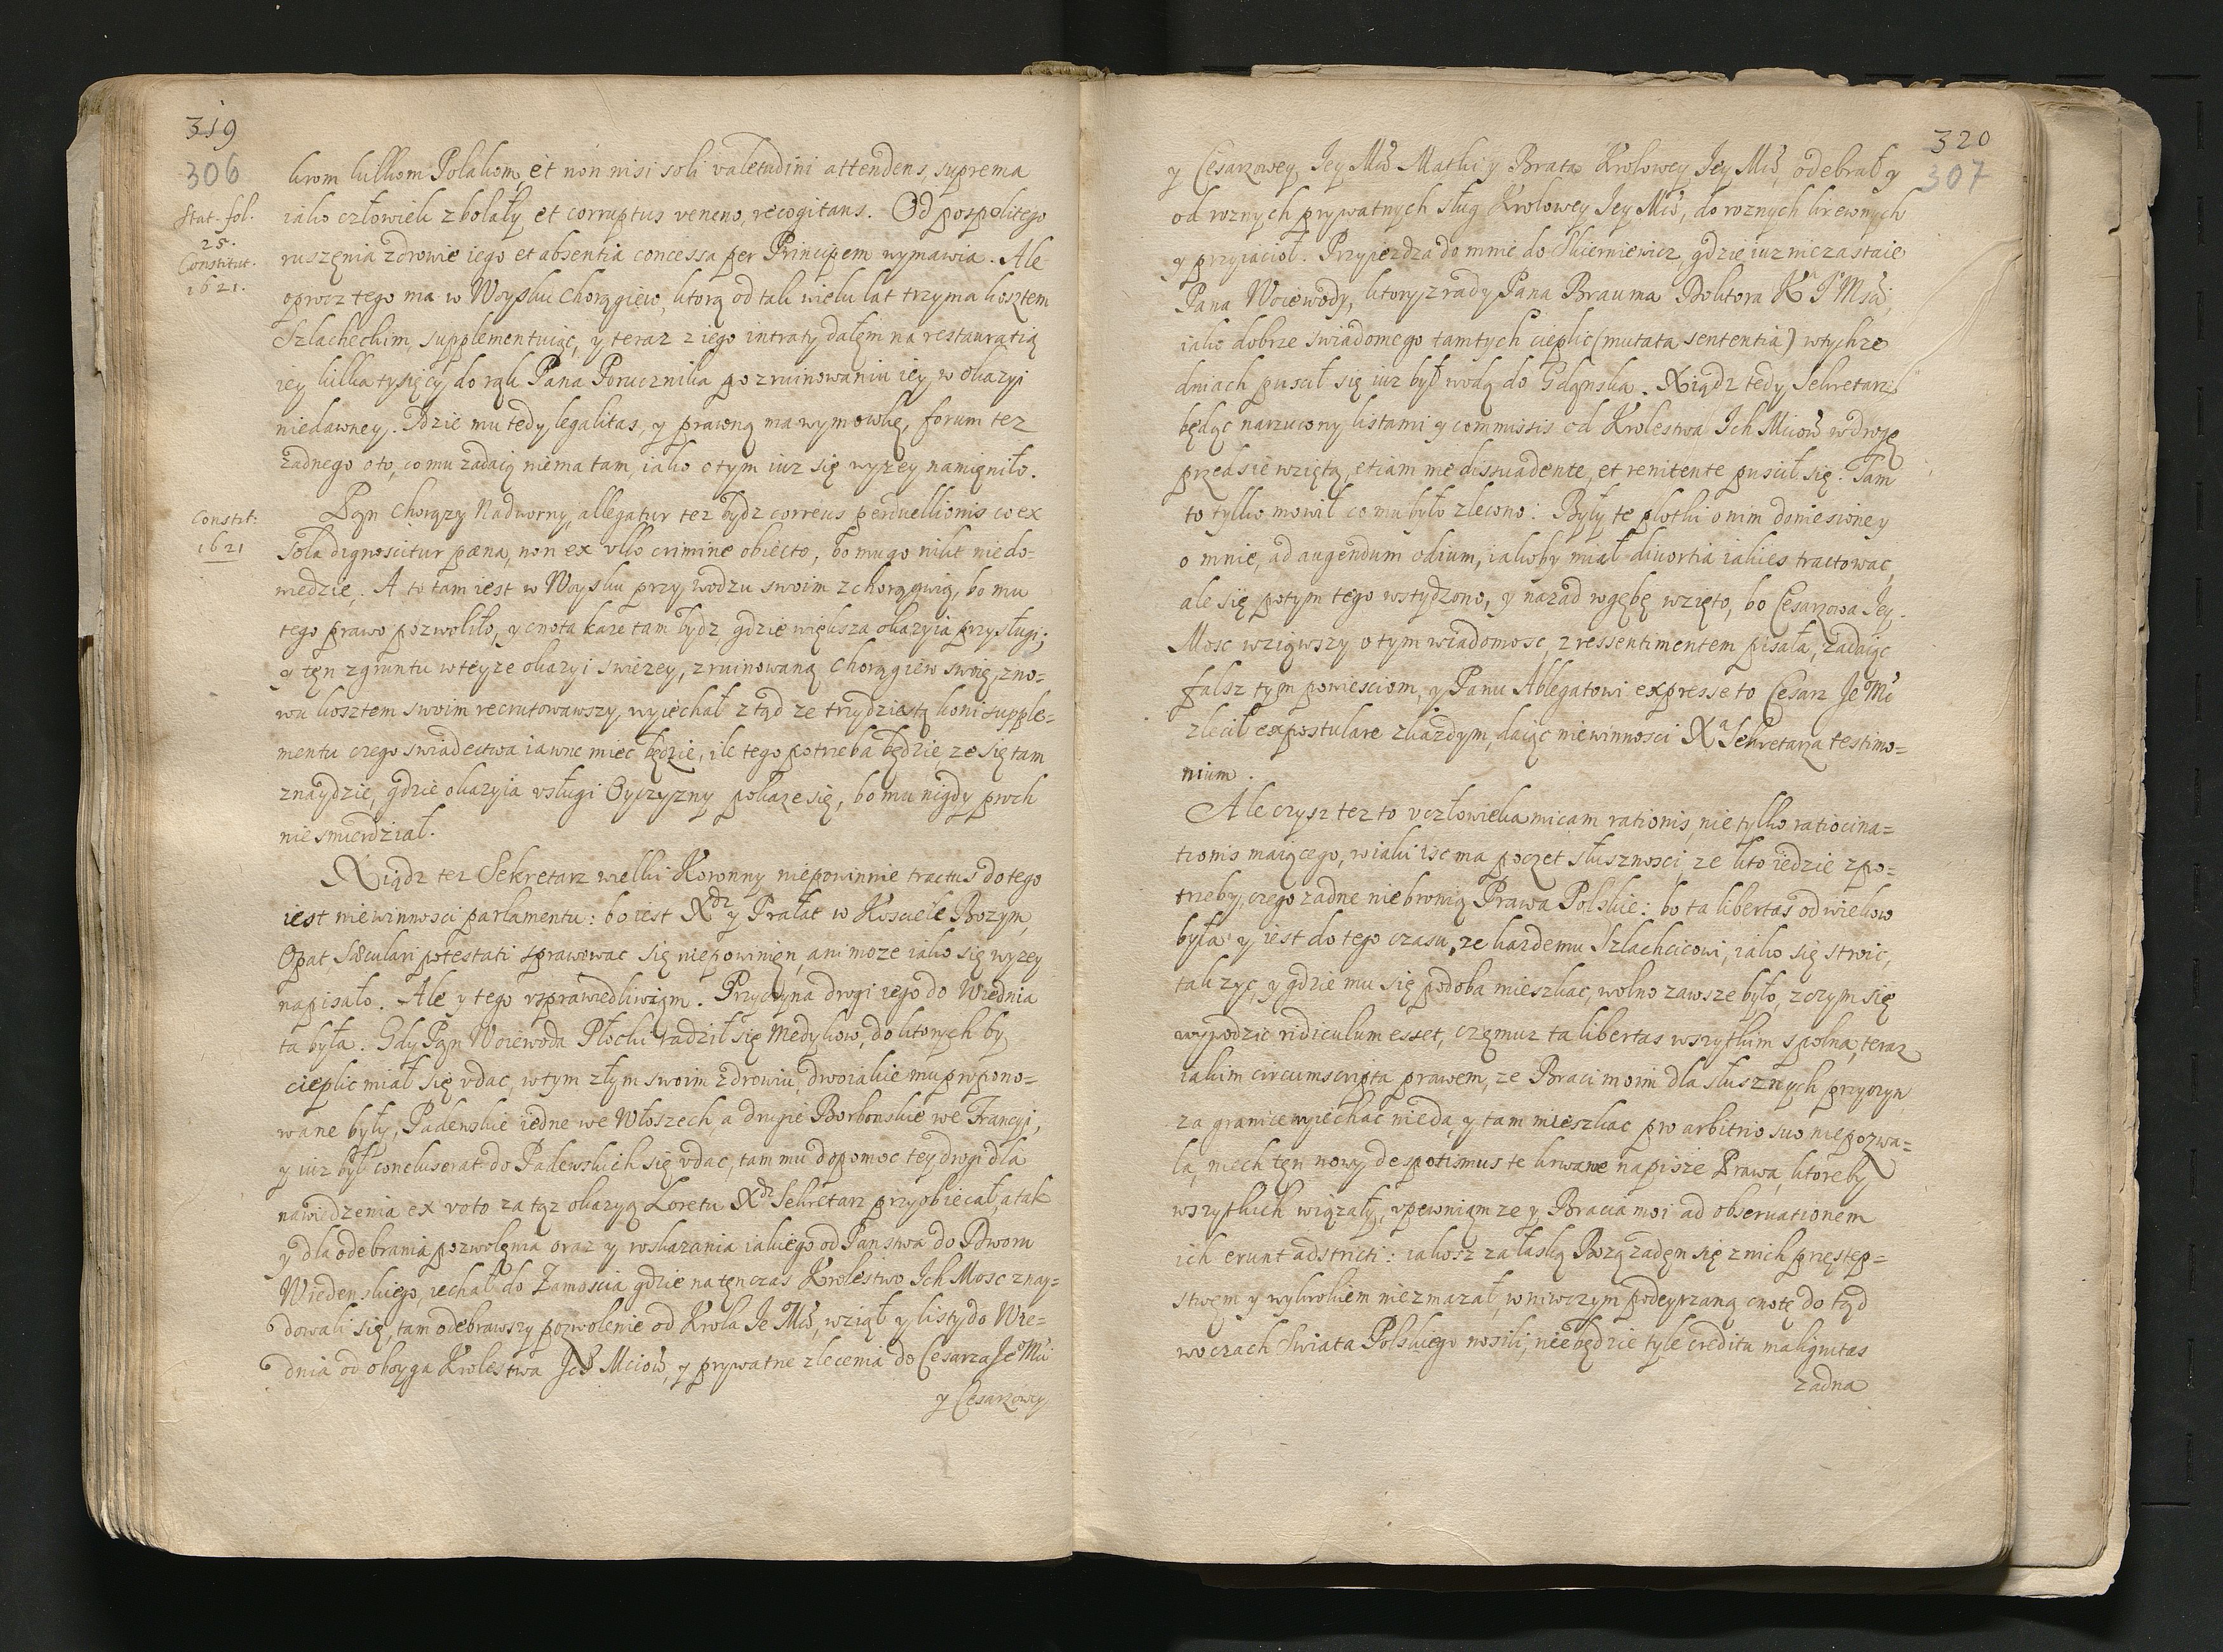 319
306
Stat. fol.
25.
Constitut.
1621.
krom kilkom Polakom, et non nisi soli valetudini attendens, suprema
iako człowiek zbolały et corruptus veneno, recogitans. Od pospolitego
ruszęnia zdrowie iego et absentia concessa per Principem wymawia. Ale
oprocz tego ma w Woysku chorągiew, ktorą od tak wielu lat trzyma kosztem
Szlacheckim, supplementuiąc, y teraz z iego intraty dałęm na restauratią
iey kilka tysięcy do rąk Pana Porucznika po zruinowaniu iey w okazyi
niedawney. Idzie mu tedy legalitas, y prawną ma wymowkę, forum tez
zadnego o to, co mu zadaią niema tam, iako o tym iuz się wyzey namięniło.
Constit:
1621
Pąn Chorązy Nadworny, allegatur tez bydz correus perduellionis co ex
sola dignoscitur pæna, non ex vllo crimine obiecto, bo mu go nikt niedo-
wiedzie. A to tam iest w Woysku przy wodzu swoim z chorągwią, bo mu
tego prawo pozwoliło, y cnota kaze tam bydz gdzie większa okazyia przysługi;
y tęn z gruntu w teyze okazyi swiezey, zruinowaną chorągiew swoię, zno-
wu kosztem swoim recrutowawszy, wyiechał ztąd ze trzydziestą koni supple-
mentu czego swiadectwa iawne miec będzie, ile tego potrzeba będzie, ze się tam
znaydzie, gdzie okazyia vsługi Oyczyzny pokaze się, bo mu nigdy proch
nie smierdział.
Xiądz tez Sekretarz wielki Koronny niepowinnie tractus do tego
iest niewinnosci parlamentu: bo iest Xdz y Prałat w Kosciele Bozym,
Opat Sæculari potestati sprawowac się niepowinięn, ani moze iako się wyzey
napisało. Ale y tego vsprawiedliwiąm. Przyczyna drogi iego do Wiednia
ta była. Gdy Pąn Woiewoda Płocki radził się Medykow, do ktorych by
cieplic miał się vdac, w tym złym swoim zdrowiu, dwoiakie mu propono-
wane były, Padewskie iedne we Włoszech, a drugie Borbonskie we Francyi,
y iuz był concluserat do Padewskich się vdac, tam mu dopomoc tey drogi dla
nawiedzenia ex voto za tąz okazyą Loretu Xdz Sekretarz przyobiecał, a tak
y dla odebrania pozwolęnia oraz y roskazania iakiego od Państwa do Dworu
Wiedenskiego, iechał do Zamoscia gdzie natęnczas Krolestwo Ich Mosc znay-
dowali się, tam odebrawszy pozwolenie od Krola Je Mci, wziął y listy do Wie-
dnia od oboyga Krolestwa Ich Mciow, y prywatne zlecenia do Cesarza Je Mci
y Cesarzowey
320
307
y Cesarzowey Jey Mci Matki y Brata Krolowey Jey Mci, odebrał y
od roznych prywatnych sług Krolowey Jey Mci, do roznych krewnych
y przyiacioł. Przyiezdza do mnie do Skierniewicz, gdzie iuz niezastaie
Pana Woiewody, ktory z rady Pana Brauma Doktora K J Msci,
iako dobrze swiadomego tamtych cieplic (mutata sententia) w tychze
dniach puscił się iuz był wodą do Gdąnska. Xiądz tedy Sekretarz
będąc narzucony listami y commissis od Krolestwa Ich Mciow w drogę
przedsiewziętą, etiam me dissuadente, et renitente puscił się. Tam
to tylko mowił co mu było zlecono. Były te plotki o nim doniesione y
o mnie, ad augendum odium, iakoby miał diuortia iakies tractowac,
ale się potym tego wstydzono, y nazad w gębę wzięto, bo Cesarzowa Jey
Mosc wziąwszy o tym wiadomosc, z ressentimentem pisała, zadaiąc
falsz tym powiesciom, y Panu Ablegatowi expresse to Cesarz Je Mci
zlecił expostulare z kazdym, daiąc niewinnosci Xa Sekretarza testimo-
nium.
Ale czysz tez to v człowieka micam rationis, nie tylko ratiocina-
tionis maiącego, w iaki isc ma poczet słusznosci, ze kto iedzie z po-
trzeby, czego zadne niebronią Prawa Polskie: bo ta libertas od wiekow
była y iest do tego czasu, ze kazdemu Szlachcicowi, iako się stroic,
tak zyc, y gdzie mu się podoba mieszkac, wolno zawsze było, z czym się
wywodzic ridiculum esset, częmuz ta libertas wszytkim spolna, teraz
iakim circumscripta prawem, ze Braci moim dla słusznych przyczyn
za granice wyiechac nieda, y tam mieszkac pro arbitrio suo niepozwa-
la, niech tęn nowy despotismus te krwawe napisze Prawa, ktore by
wszytkich wiązały, vpewniąm ze y Bracia moi ad obseruationem
ich erunt adstricti: iakosz za łaską Bozą zadęn się z nich pręstęp-
stwęm y wykrokiem niezmazał, w niwczym podeyrzaną cnotę do tąd
w oczach Swiata Polskiego nosili; nie będzie tyle creditu malignitas
zadna